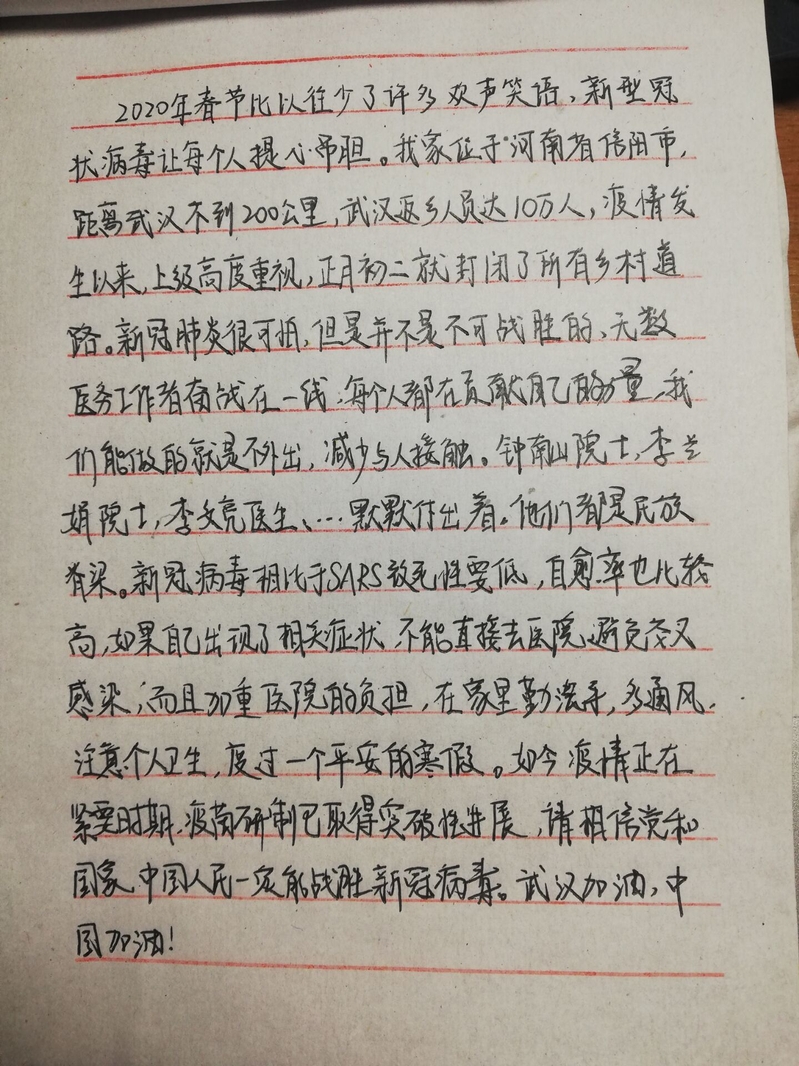 2020年春节比以往少了许多欢声笑语，新型冠
状病毒让每个人提心吊胆。我家位于河南省信阳市，
距离武汉不到200公里，武汉返乡人员达10万人，疫情发
生以来，上级高度重视，正月初二就封闭了所有乡村道
路。新冠肺炎很可怕，但是并不是不可战胜的，无数
医务工作者奋战在一线，每个人都在贡献自己的力量，我
们能做的就是不外出，减少与人接触。钟南山院士，李兰
娟院士，李文亮医生、…默默付出着。他们都是民族
脊梁。新冠病毒相比于SARS致死性要低，自愈率也比较
高，如果自己出现了相关症状 不能直接去医院，避免交叉
感染，而且加重医院的负担，在家里勤洗手，多通风，
注意个人卫生，度过一个平安的寒假。如今疫情正在
紧要时期，疫苗研制已取得突破性进展，请相信党和
国家，中国人民一定能战胜新冠病毒。武汉加油，中
国加油！